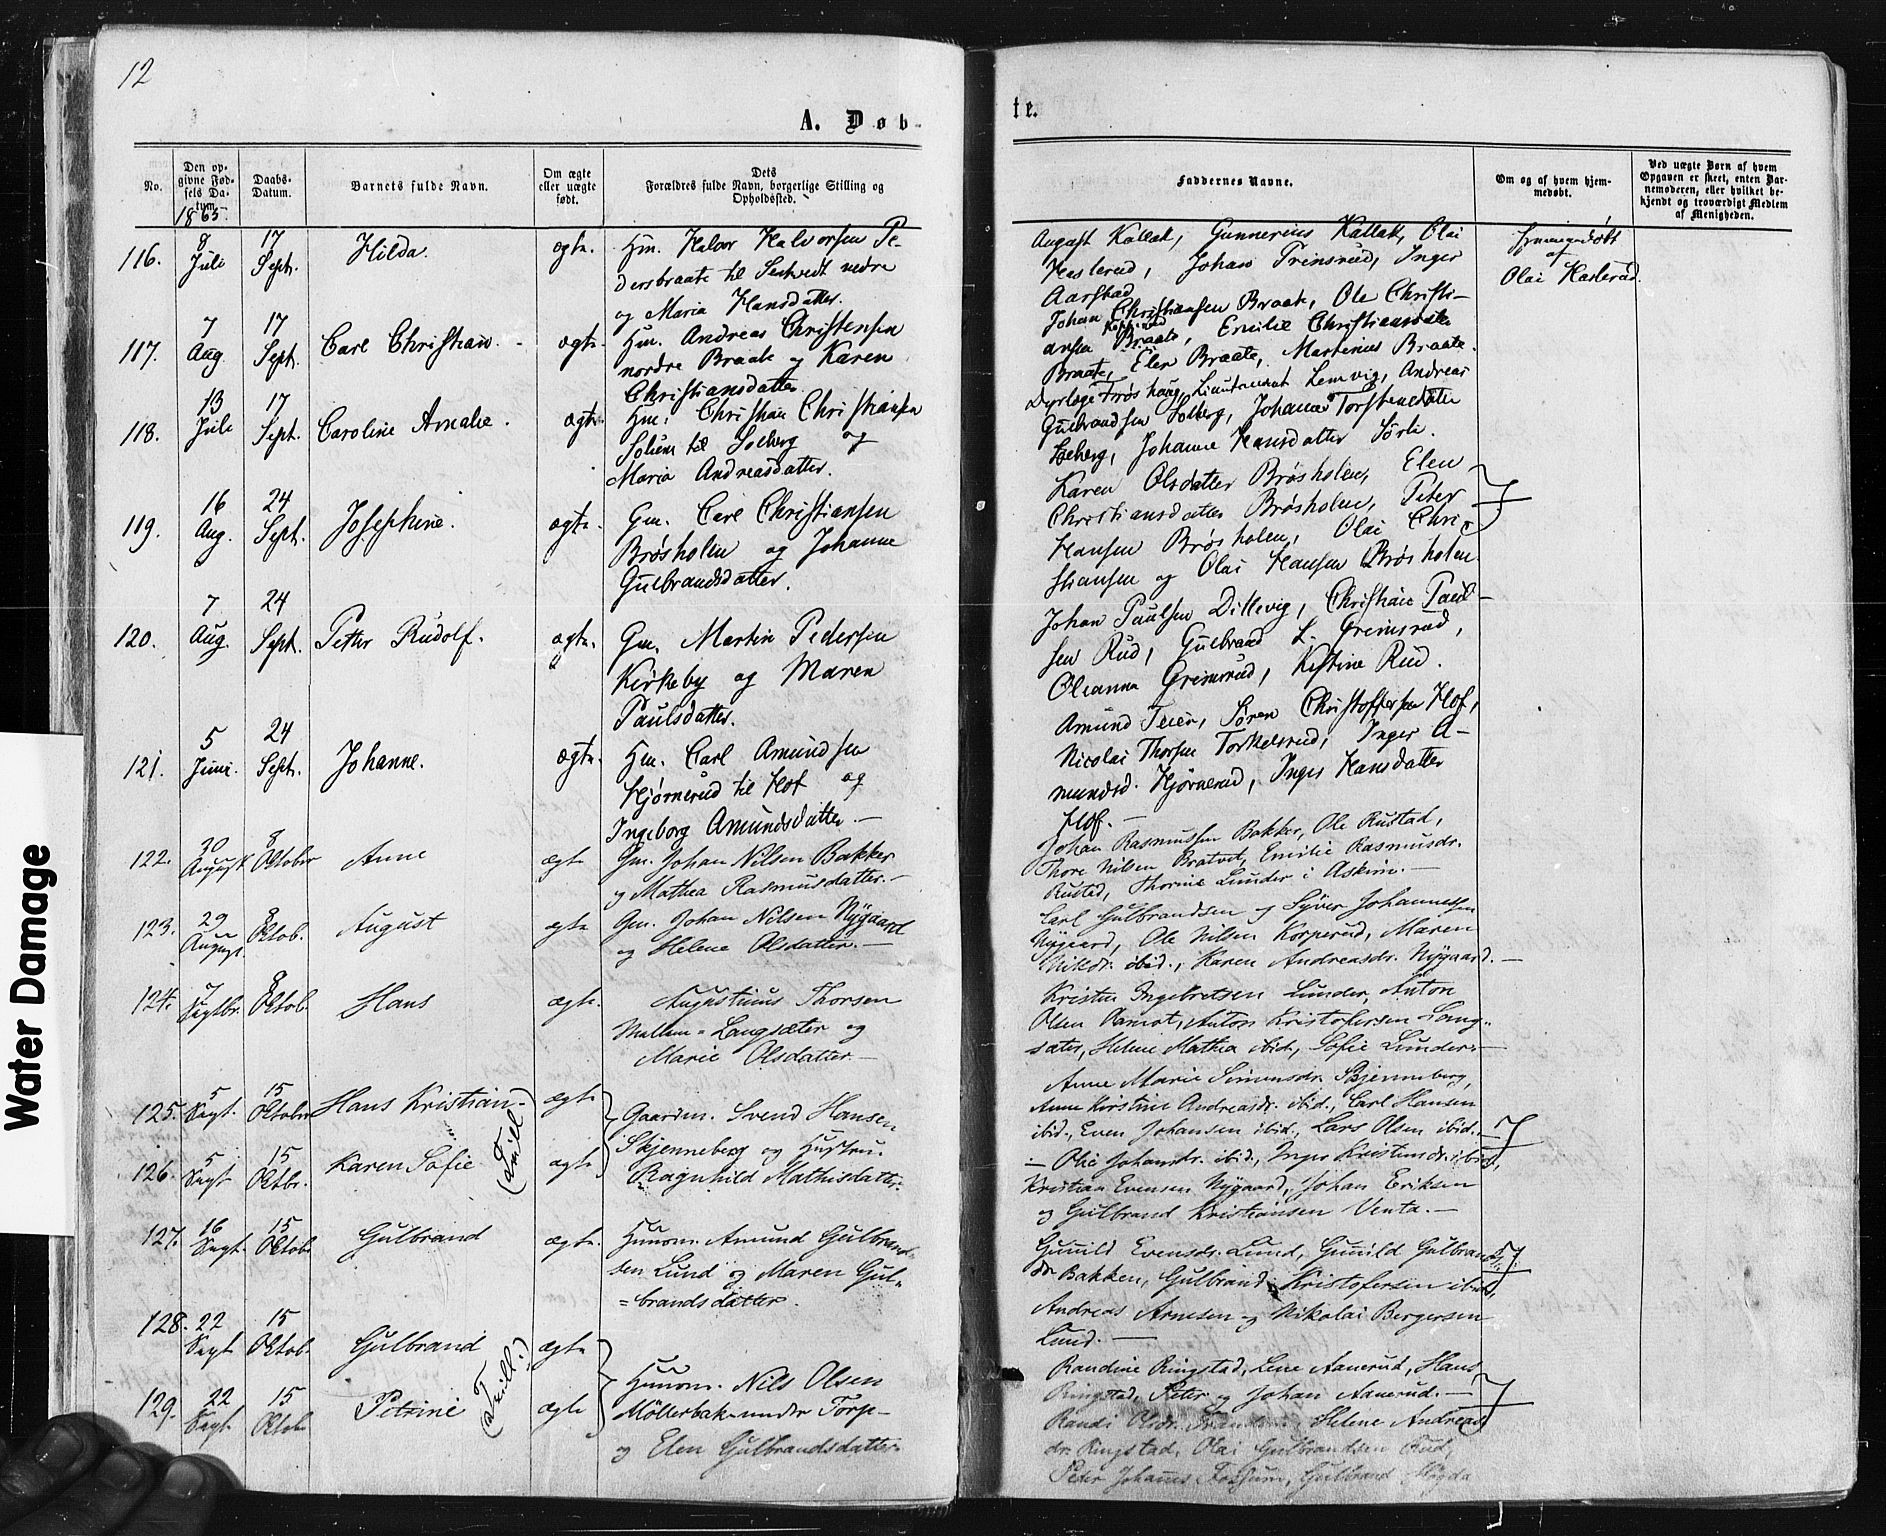 12
A. Døb-
te.
No.
Den op-
givne Fød-
sels Da-
tum.
1865.
Daabs-
Datum.
Barnets fulde Navn.
Om ægte
eller uægte
født.
Dets
Forældres fulde Navn, borgerlige Stilling og
Opholdssted.
Faddernes Navne.
Om og af hvem hjem-
medøbt.
Ved uægte Børn af hvem
Opgaven er skeet, enten Bar-
nemoderen, eller hvilket be-
kjendt og troværdigt Medlem
af Menigheden.
116.
8
Juli
17
Sept.
Hilda.
ægte.
Hm. Halvor Halvorsen Pe-
dersbraate til Sekvedt nedre
og Maria Hansdatter.
August Kallak, Gunnerius Kallak, Olai
Haslerud, Johan Trinsrud, Inger
Aarstad
Hjemmedøbt
af
Olai Haslerud.
117.
7
Aug.
17
Sept.
Carl Christian.
ægte
Hm. Andreas Christensen
nordre Braate og Karen
Christiansdatter
Johan Christiansen Braate, Ole Christi-
ansen Braate, Emilie Christiansdatter
Braate, Elen Braate, Martinius Braate.
118.
13
Juli
17
Sept.
Caroline Amalie.
ægte
Hm. Christian Christiansen
Solum til Solberg og
Maria Andreasdatter.
Dyrlæge Frøshaug, Lieutenant Lemvig, Andreas
Gulbrandsen Solberg, Johanne Torstensdatter
Solberg, Johanne Hansdatter Sørli.
119.
16
Aug.
24
Sept.
Josephine.
ægte.
Gm. Carl Christiansen
Brøsholen og Johanne
Gulbrandsdatter.
Karen Olsdatter Brøsholen, Elen
Christiansdatter Brøsholen, Peter
Hansen Brøsholen, Olai Chri-
stiansen og Olai Hansen Brøsholen
120.
7
Aug.
24
Sept.
Petter Rudolf.
ægte.
Gm. Martin Pedersen
Kirkeby og Maren
Paulsdatter.
Johan Paulsen Ditlevig, Christian Paul-
sen Rud, Gulbrand L. Grimsrud,
Oleanna Grimsrud, Kistine Rud.
121.
5
Juni.
24
Sept.
Johanne.
ægte.
Hm. Carl Amundsen
Hjørnerud til Hof og
Ingeborg Amundsdatter.—
Amund Teier, Søren Christoffersen Hof,
Nicolai Thorsen Torkelsrud, Inger A-
mundsd. Hjørnerud, Inger Hansdatter
Hof.—
122.
30
August
8
Oktober
Anne
ægte
Gm. Johan Nilsen Bakker
og Mathea Rasmusdatter.—
Johan Rasmussen Bakker, Ole Rustad,
Thore Nilsen Bratvet, Emilie Rasmusdr.
Rustad, Thorine Lunder i Askim.—
123.
29
August.
8
Oktob.
August
ægte
Gm. Johan Nilsen Nygaard
og Helene Olsdatter.—
Carl Gulbrandsen og Syver Johannessen
Nygaard, Ole Nilsen Korperud, Maren
Nilsdr. ibid., Karen Andreasdr. Nygaard.—
124.
7
Septbr.
8
Oktob.
Hans
ægte.
Augustinus Thorsen
Mellem-Langsæter og
Marie Olsdatter—
Kristen Ingebretsen Lunder, Anton
Olsen Aamot, Anton Kristofersen Lang-
sæter, Helene Mathea ibid., Sofie Lunder.—
125.
5
Sept.
15
Oktober
Hans Kristian
(Tvill.)
ægte
Gaardm. Svend Hansen
Skjenneberg og Hustru
Ragnhild Mathisdatter.
Anne Marie Simensdr. Skjenneberg,
Anne Kirstine Andreasdr. ibid., Carl Hansen
ibid., Even Johansen ibid., Lars Olsen ibid.
126.
5
Sept
15
Oktbr.
Karen Sofie
ægte
— Olie Johansdr. ibid., Inger Kristiansdr. ibid,
Kristian Evensen Nygaard, Johan Eriksen
og Gulbrand Kristiansen Venta.—
127.
16
Sept.
15
Oktob
Gulbrand
ægte.
Husm. Amund Gulbrand-
sen Lund og Maren Gul-
brandsdatter.
Gunild Evensdr. Lund, Gunild Gulbrands-
dr Bakken, Gulbrand Kristofersen ibid,
Andreas Arnesen og Nikolai Bergersen
Lund.—
128.
22
Sept
15
Oktob.
Gulbrand
(Tvill.)
ægte
Husm. Nils Olsen
Möllerbak under Torp
og Elen Gulbrandsdatter.
Randine Ringstad, Lene Aanerud, Hans
Ringstad, Peter og Johan Aanerud.—
129.
22
Sept
15
Oktob
Petrine
ægte
Randi Olsdr. Helene Andreas
dr. Ringstad, Olai Gulbrandsen Rud,
Peder Johannes Fossum, Gulbrand
Water Damage